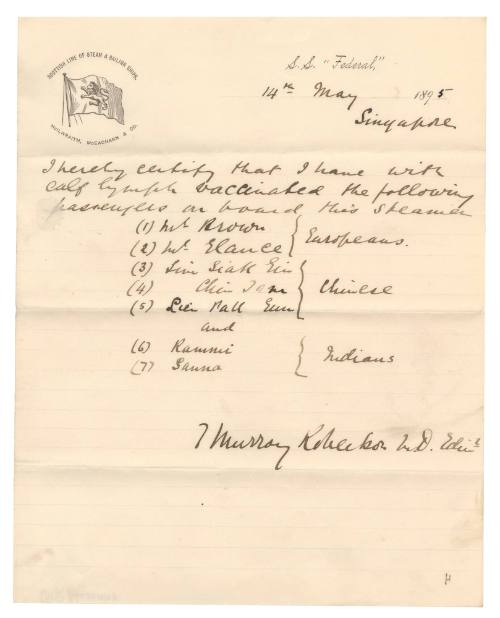 SCOTTISH LINE OF STEAM & SAILING SHIPS,
McILWRAITH, McEACHARN & CO.
S.S. "Federal,"
14th May 1895
Singapore
I hereby certify that I have with
calf lymph vaccinated the following
passengers on board this Steamer
(1) Mr Brown
(2) Mr Elance } Europeans.
(3) Lim Siak Ein
(4) Chin Jam } Chinese
(5) Lim Mall Eun
and
(6) Rammi
(7) Sanna } Indians
T Murray Robertson M.D. Edinr
H